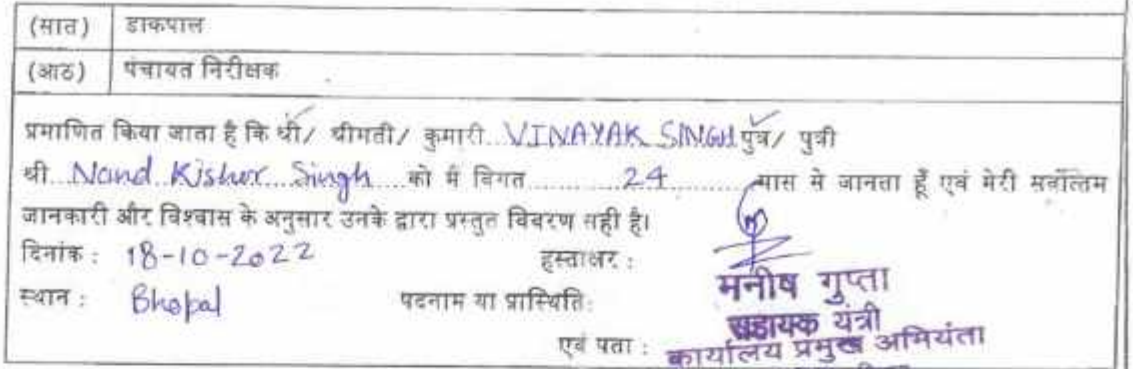 (सात) डाकपाल
(आठ) पंचायत निरीक्षक
प्रमाणित किया जाता है कि श्री/ श्रीमती/ कुमारी...VINAYAK SINGH पुत्र/ पुत्री
श्री...Nand Kishor Singh...को मैं विगत...24...मास से जानता हूँ एवं मेरी सर्वोत्तम
जानकारी और विश्वास के अनुसार उनके द्वारा प्रस्तुत विवरण सही है।
दिनांक : 18-10-2022 हस्ताक्षर :
मनीष गुप्ता
स्थान : Bhopal पदनाम या प्रास्थिति:
सहायक यंत्री
एवं पता : कार्यालय प्रमुख अभियंता